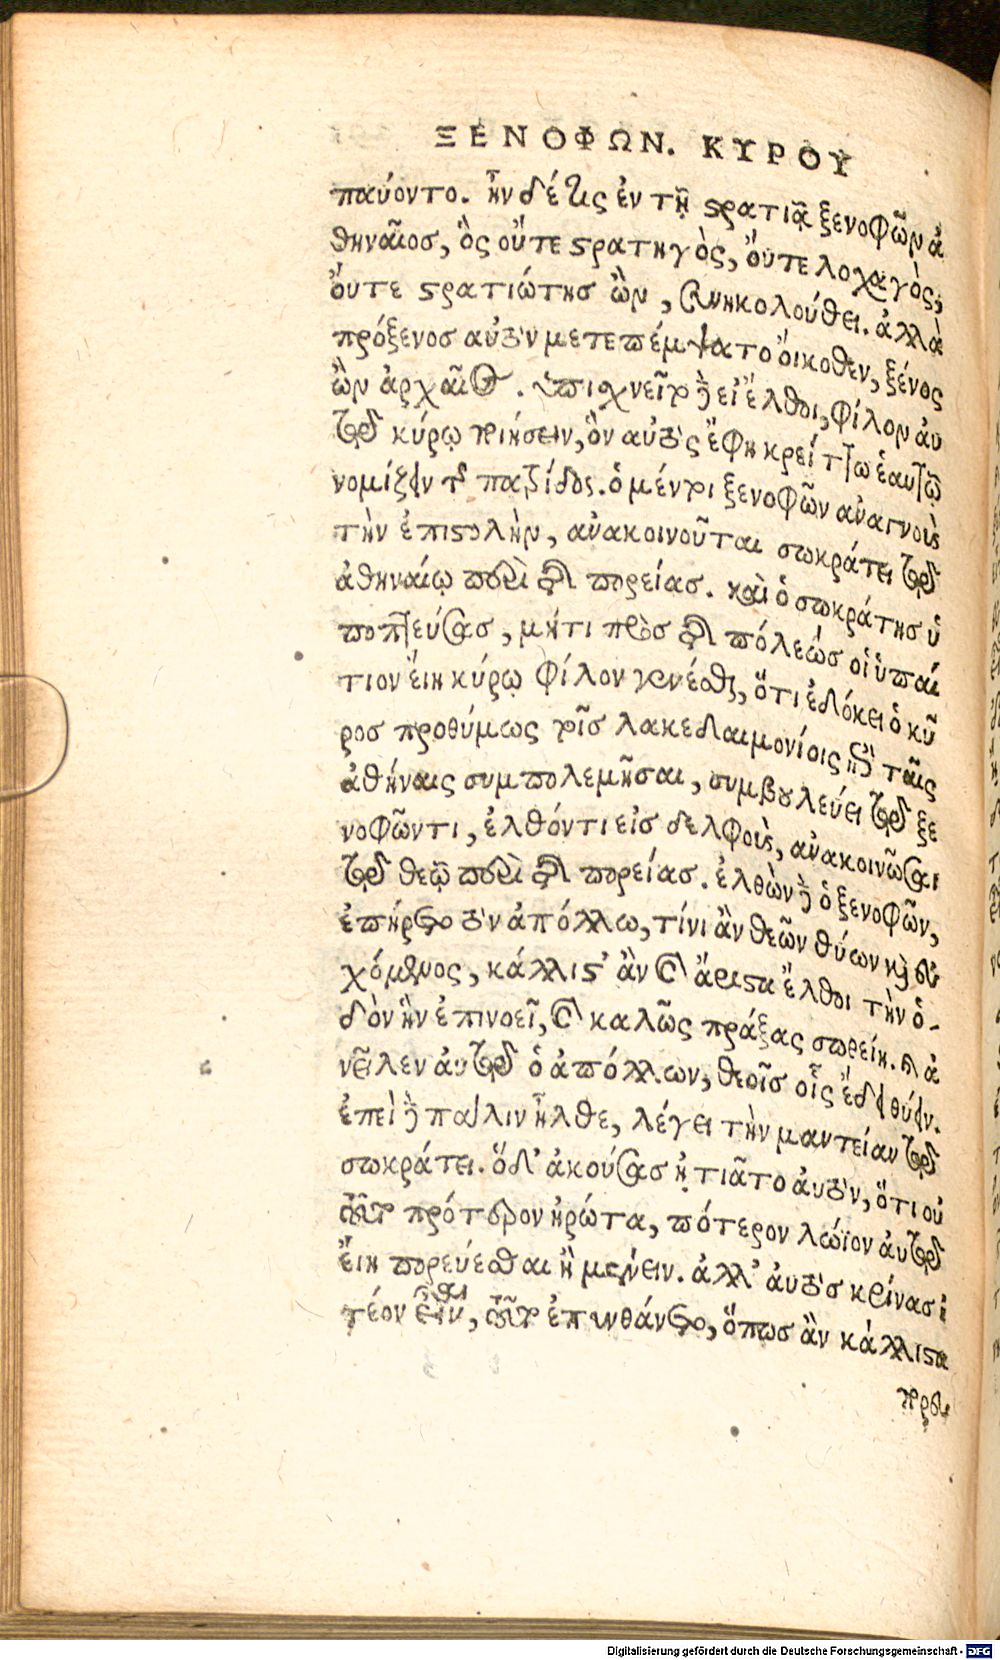 ΞΕΝΟΦΩΝ. ΚΥΡΟΥ
παύοντο. ἦν δέ τις ἐν τῇ στρατιᾷ ξενοφῶν ἀ
θηναῖοσ, ὃς οὔτε στρατηγὸς, ὄυτε λοχαγὸς,
ὄυτε στρατιώτησ ὢν, συνηκολούθει. ἀλλὰ
πρόξενοσ αὐτὸν μετεπέμψατο ὄικοθεν, ξένος
ὢν ἀρχαῖος. ὑπιχνεῖτο δὲ εἰ ἔλθοι, φίλον αὐ
τῷ κύρῳ ποιήσειν, ὃν αὐτὸς ἔφη κρείττω ἑαυτῷ
νομίζειν τῆς πατρίδος. ὁ μέντοι ξενοφῶν αὐαγνοὺς
τὴν ἐπιστολὴν, αὐακοινοῦται σωκράτει τῷ
ἀθηναίῳ περὶ τῆς πορείασ. καὶ ὁ σωκράτησ ὑ
ποπτεύσασ, μήτι πρὸσ τῆς πόλεώσ οἱ ὑπαί
τιον ἔιη κύρῳ φίλον γενέσθαι, ὅτι ἐδόκει ὁ κῦ
ροσ προθύμως τοῖσ λακεδαιμονίοις ἐπὶ ταῖς
ἀθήναις συμπολεμῆσαι, συμβουλεύει τῷ ξε
νοφῶντι, ἐλθόντι εἰσ δελφοὺς, αὐακοινῶσαι
τῷ θεῷ περὶ τῆς πορείασ. ἐλθὼν δὲ ὁ ξενοφῶν,
ἐπήρετο τὸν ἀπόλλω, τίνι ἂν θεῶν θύων καὶ εὐ
χόμενος, κάλλιστ' ἂν καὶ ἄριστα ἔλθοι τὴν ὁ-
δὸν ἣν ἐπινοεῖ, καὶ καλῶς πράξας σωθείη. καὶ ἀ
νεῖλεν ἀυτῷ ὁ ἀπόλλων, θεοῖσ οἷς ἔδει θύειν.
ἐπεὶ δὲ πάλιν ἦλθε, λέγει τὴν μαντείαν τῷ
σωκράτει. ὅδ' ἀκούσασ ᾐτιᾶτο ἀυτὸν, ὅτι οὐ
τοῦτο πρότερον ἠρώτα, πότερον λώϊον ἀυτῷ
ἔιη πορεύεσθαι ἢ μένειν. ἀλλ' ἀυτὸσ κρίνασ ἰ
τέον εἶναι, τοῦτο ἐπυνθάνετο, ὅπωσ ἂν κάλλιστα
πορευ
Digitalisierung gefördert durch die Deutsche Forschungsgemeinschaft - DFG